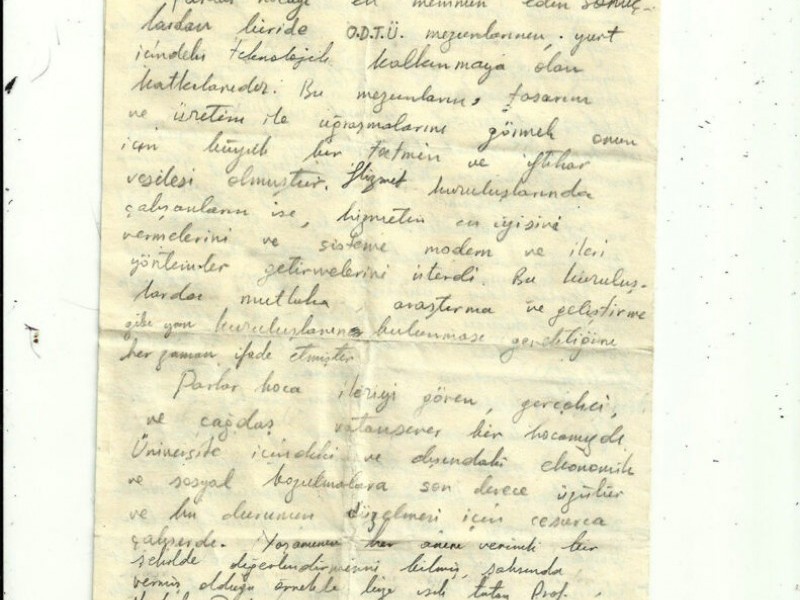 Parlar hocayı en memnun eden sonuç-
lardan biride O.D.T.Ü. mezunlarının, yurt
içindeki teknolojik kalkınmaya olan
katkılarıdır. Bu mezunların, tasarım
ve üretim ile uğraşmalarını görmek onun
için büyük bir tatmin ve iftihar
vesilesi olmuştur. Hizmet kuruluşlarında
çalışanların ise, hizmetin en iyisini
vermelerini ve sisteme modern ve ileri
yöntemler getirmelerini isterdi. Bu kuruluş-
larda mutlaka araştırma ve geliştirme
gibi yan kuruluşlarının bulunması gerektiğini
her zaman ifade etmiştir
Parlar hoca ileriyi gören, gerçekci,
ve çağdaş vatansever bir hocamızdı
Üniversite içindeki ve dışındaki ekonomik
ve sosyal bozulmalara son derece üzülür
ve bu durumun düzelmesi için cesurca
çalışırdı. Yaşamının her anını verimli bir
şekilde değerlendirmesini bilmiş, şahsında
vermiş olduğu örnekle bize ışık tutan Prof.